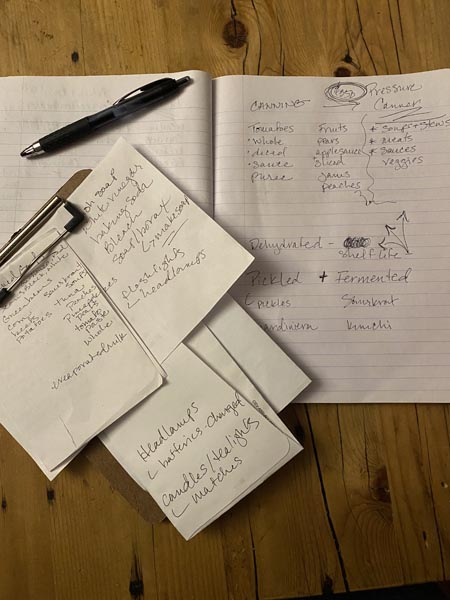 CANNING
Pressure
Canner
Tomatoes
• whole
• diced
• sauce
puree
fruits
pears
applesauce
sliced
jams
peaches
* soups + stews
* meats
* sauces
veggies
Dehydrated -
shelf life
Pickled + Fermented
pickles
Saurkrat
kimchi
soap
white vinegar
baking soda
Bleach
soap/borax
makesoap
flashlights
headlamps
Green beans
Corn
potatoes
Soups
peaches
pears
Pineapple
tomato
paste
whole
evaporated milk
Headlamps
batteries - charged
candles/tealights
matches